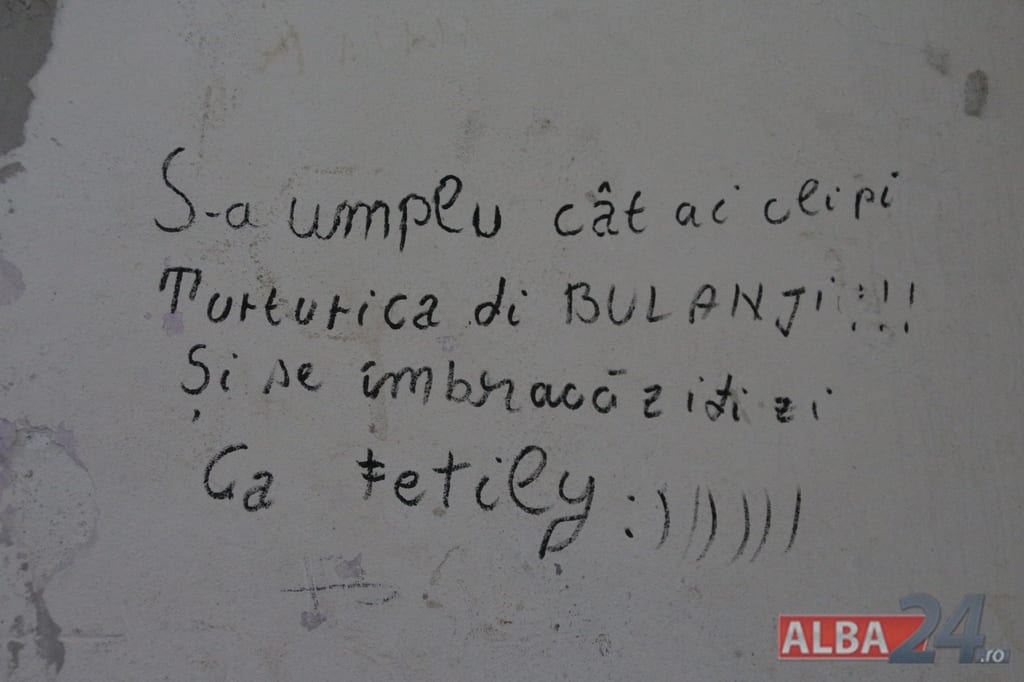 S-a umplu cât ai clipi
Turturica di BULANJI!!!
Și se îmbracă zi di zi
Ca fetily :))))))
ALBA24.ro